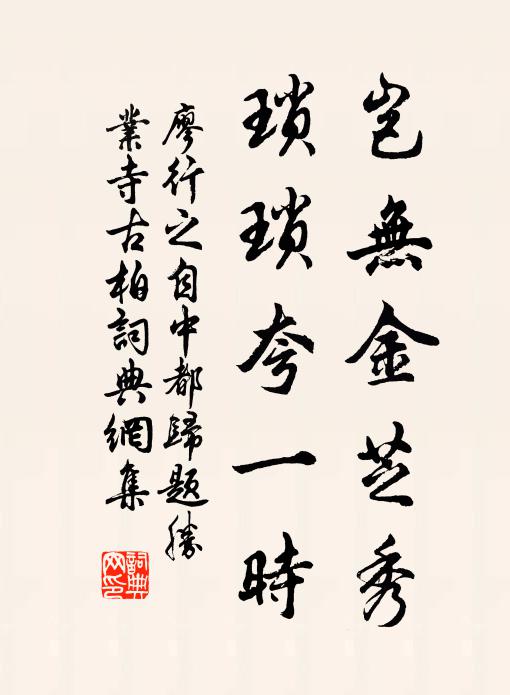 豈無金芝秀
瑣瑣夸一時
廖行之自中都歸題勝
業寺古柏詞典網集
詞典
网印